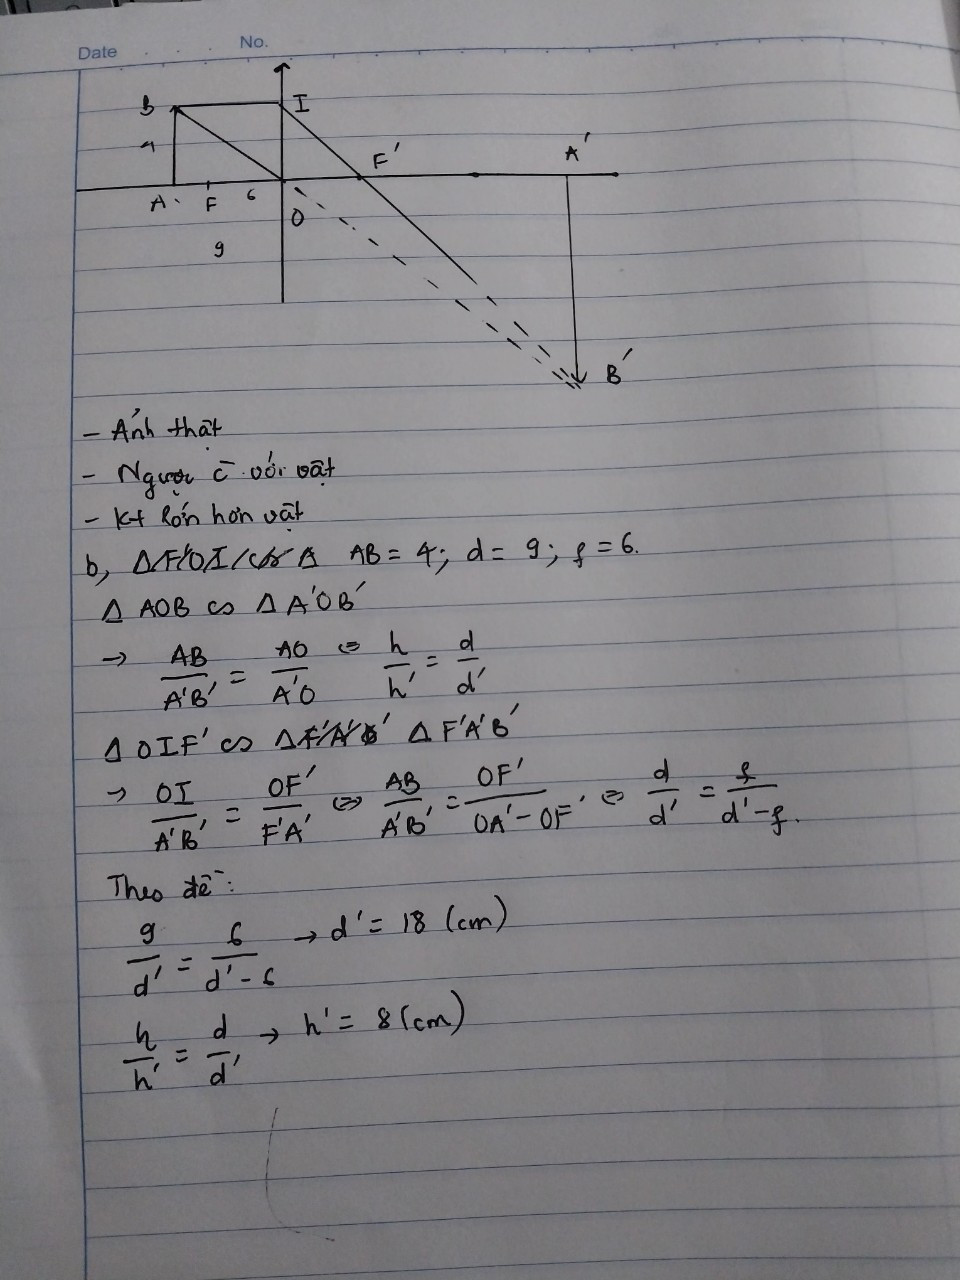 Date No.
B I
4 F' A'
A F 6 O
9
B'
- Ảnh thật
- Ngược c̄ với vật
- Kt lớn hơn vật
b, AB = 4; d = 9; f = 6.
Δ AOB ∽ Δ A'OB'
→ AB/A'B' = AO/A'O ⇔ h/h' = d/d'
Δ OIF' ∽ Δ F'A'B'
→ OI/A'B' = OF'/F'A' ⇔ AB/A'B' = OF'/OA'-OF' ⇔ d/d' = f/d'-f.
Theo đề:
9/d' = 6/d'-6 → d' = 18 (cm)
h/h' = d/d' → h' = 8 (cm)